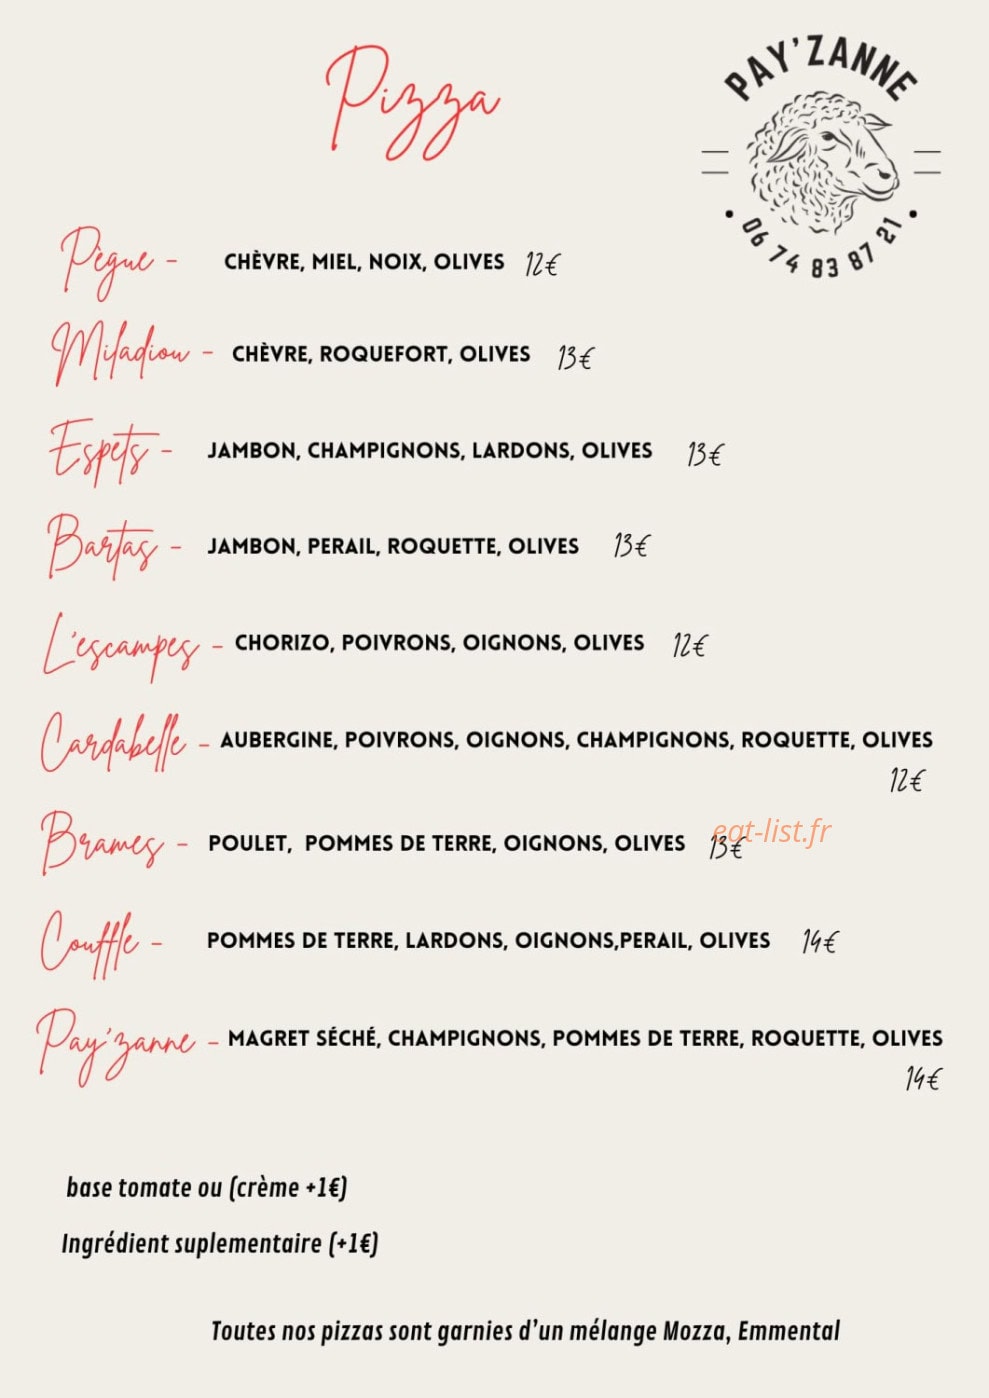 Pizza
PAY'ZANNE
06 74 83 87 21
Pègue - CHÈVRE, MIEL, NOIX, OLIVES 12€
Miladiou - CHÈVRE, ROQUEFORT, OLIVES 13€
Espets - JAMBON, CHAMPIGNONS, LARDONS, OLIVES 13€
Bartas - JAMBON, PERAIL, ROQUETTE, OLIVES 13€
L'escampes - CHORIZO, POIVRONS, OIGNONS, OLIVES 12€
Cardabelle - AUBERGINE, POIVRONS, OIGNONS, CHAMPIGNONS, ROQUETTE, OLIVES
12€
eat-list.fr
Brames - POULET, POMMES DE TERRE, OIGNONS, OLIVES 13€
Couffle - POMMES DE TERRE, LARDONS, OIGNONS,PERAIL, OLIVES 14€
Pay'zanne - MAGRET SÉCHÉ, CHAMPIGNONS, POMMES DE TERRE, ROQUETTE, OLIVES
14€
base tomate ou (crème +1€)
Ingrédient suplementaire (+1€)
Toutes nos pizzas sont garnies d'un mélange Mozza, Emmental